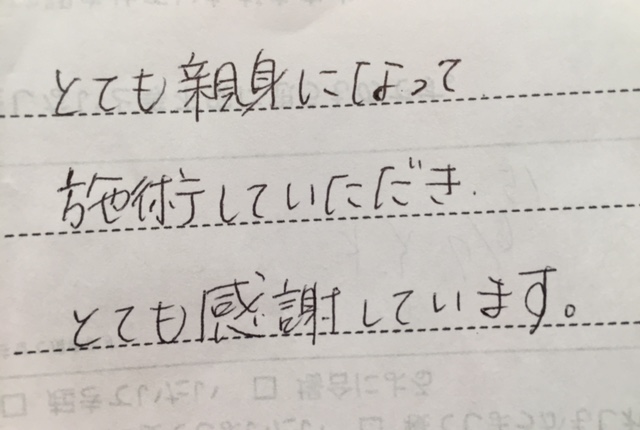 とても親身になって
施術していただき、
とても感謝しています。